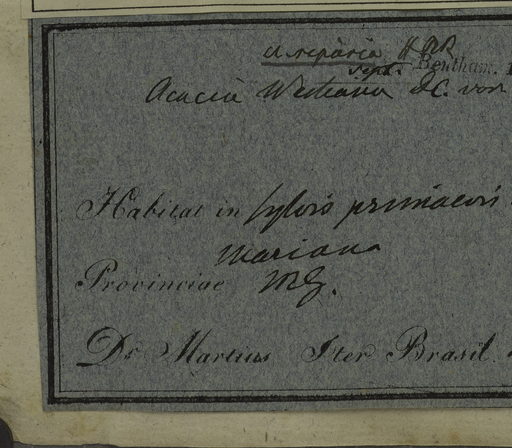 A. riparia HBK
Sept. Bentham.
Acacia Westiana DC. var
Habitat in sylvis primaevis
Mariana
Provinciae MG.
Dr Martius Iter Brasil.